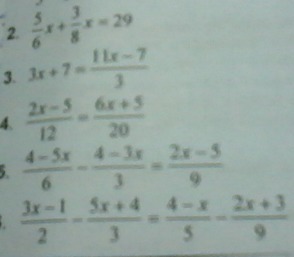 2. 5/6 x + 3/8 x = 29
3. 3x + 7 = (11x - 7)/3
4. (2x - 5)/12 = (6x + 5)/20
5. (4 - 5x)/6 - (4 - 3x)/3 = (2x - 5)/9
. (3x - 1)/2 - (5x + 4)/3 = (4 - x)/5 - (2x + 3)/9